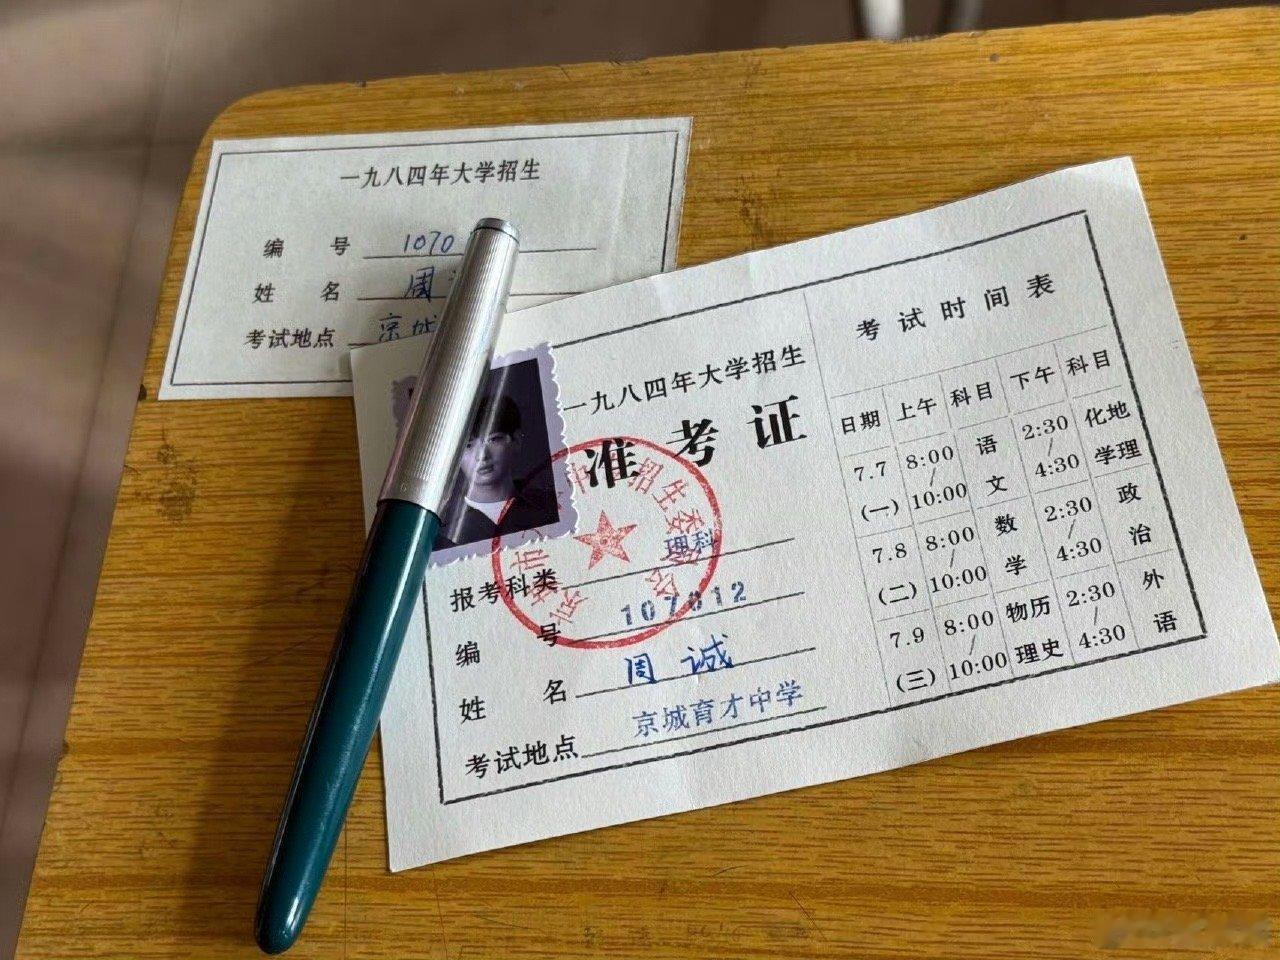 一九八四年大学招生
编 号 1070
姓 名 周
考试地点 京城
一九八四年大学招生
准考证
报考科类 理科
编 号 107012
姓 名 周诚
考试地点 京城育才中学
招生委员会
考试时间表
日期 上午 科目 下午 科目
7.7 (一) 8:00/10:00 语文 2:30/4:30 化学 地理
7.8 (二) 8:00/10:00 数学 2:30/4:30 政治
7.9 (三) 8:00/10:00 物理 历史 2:30/4:30 外语